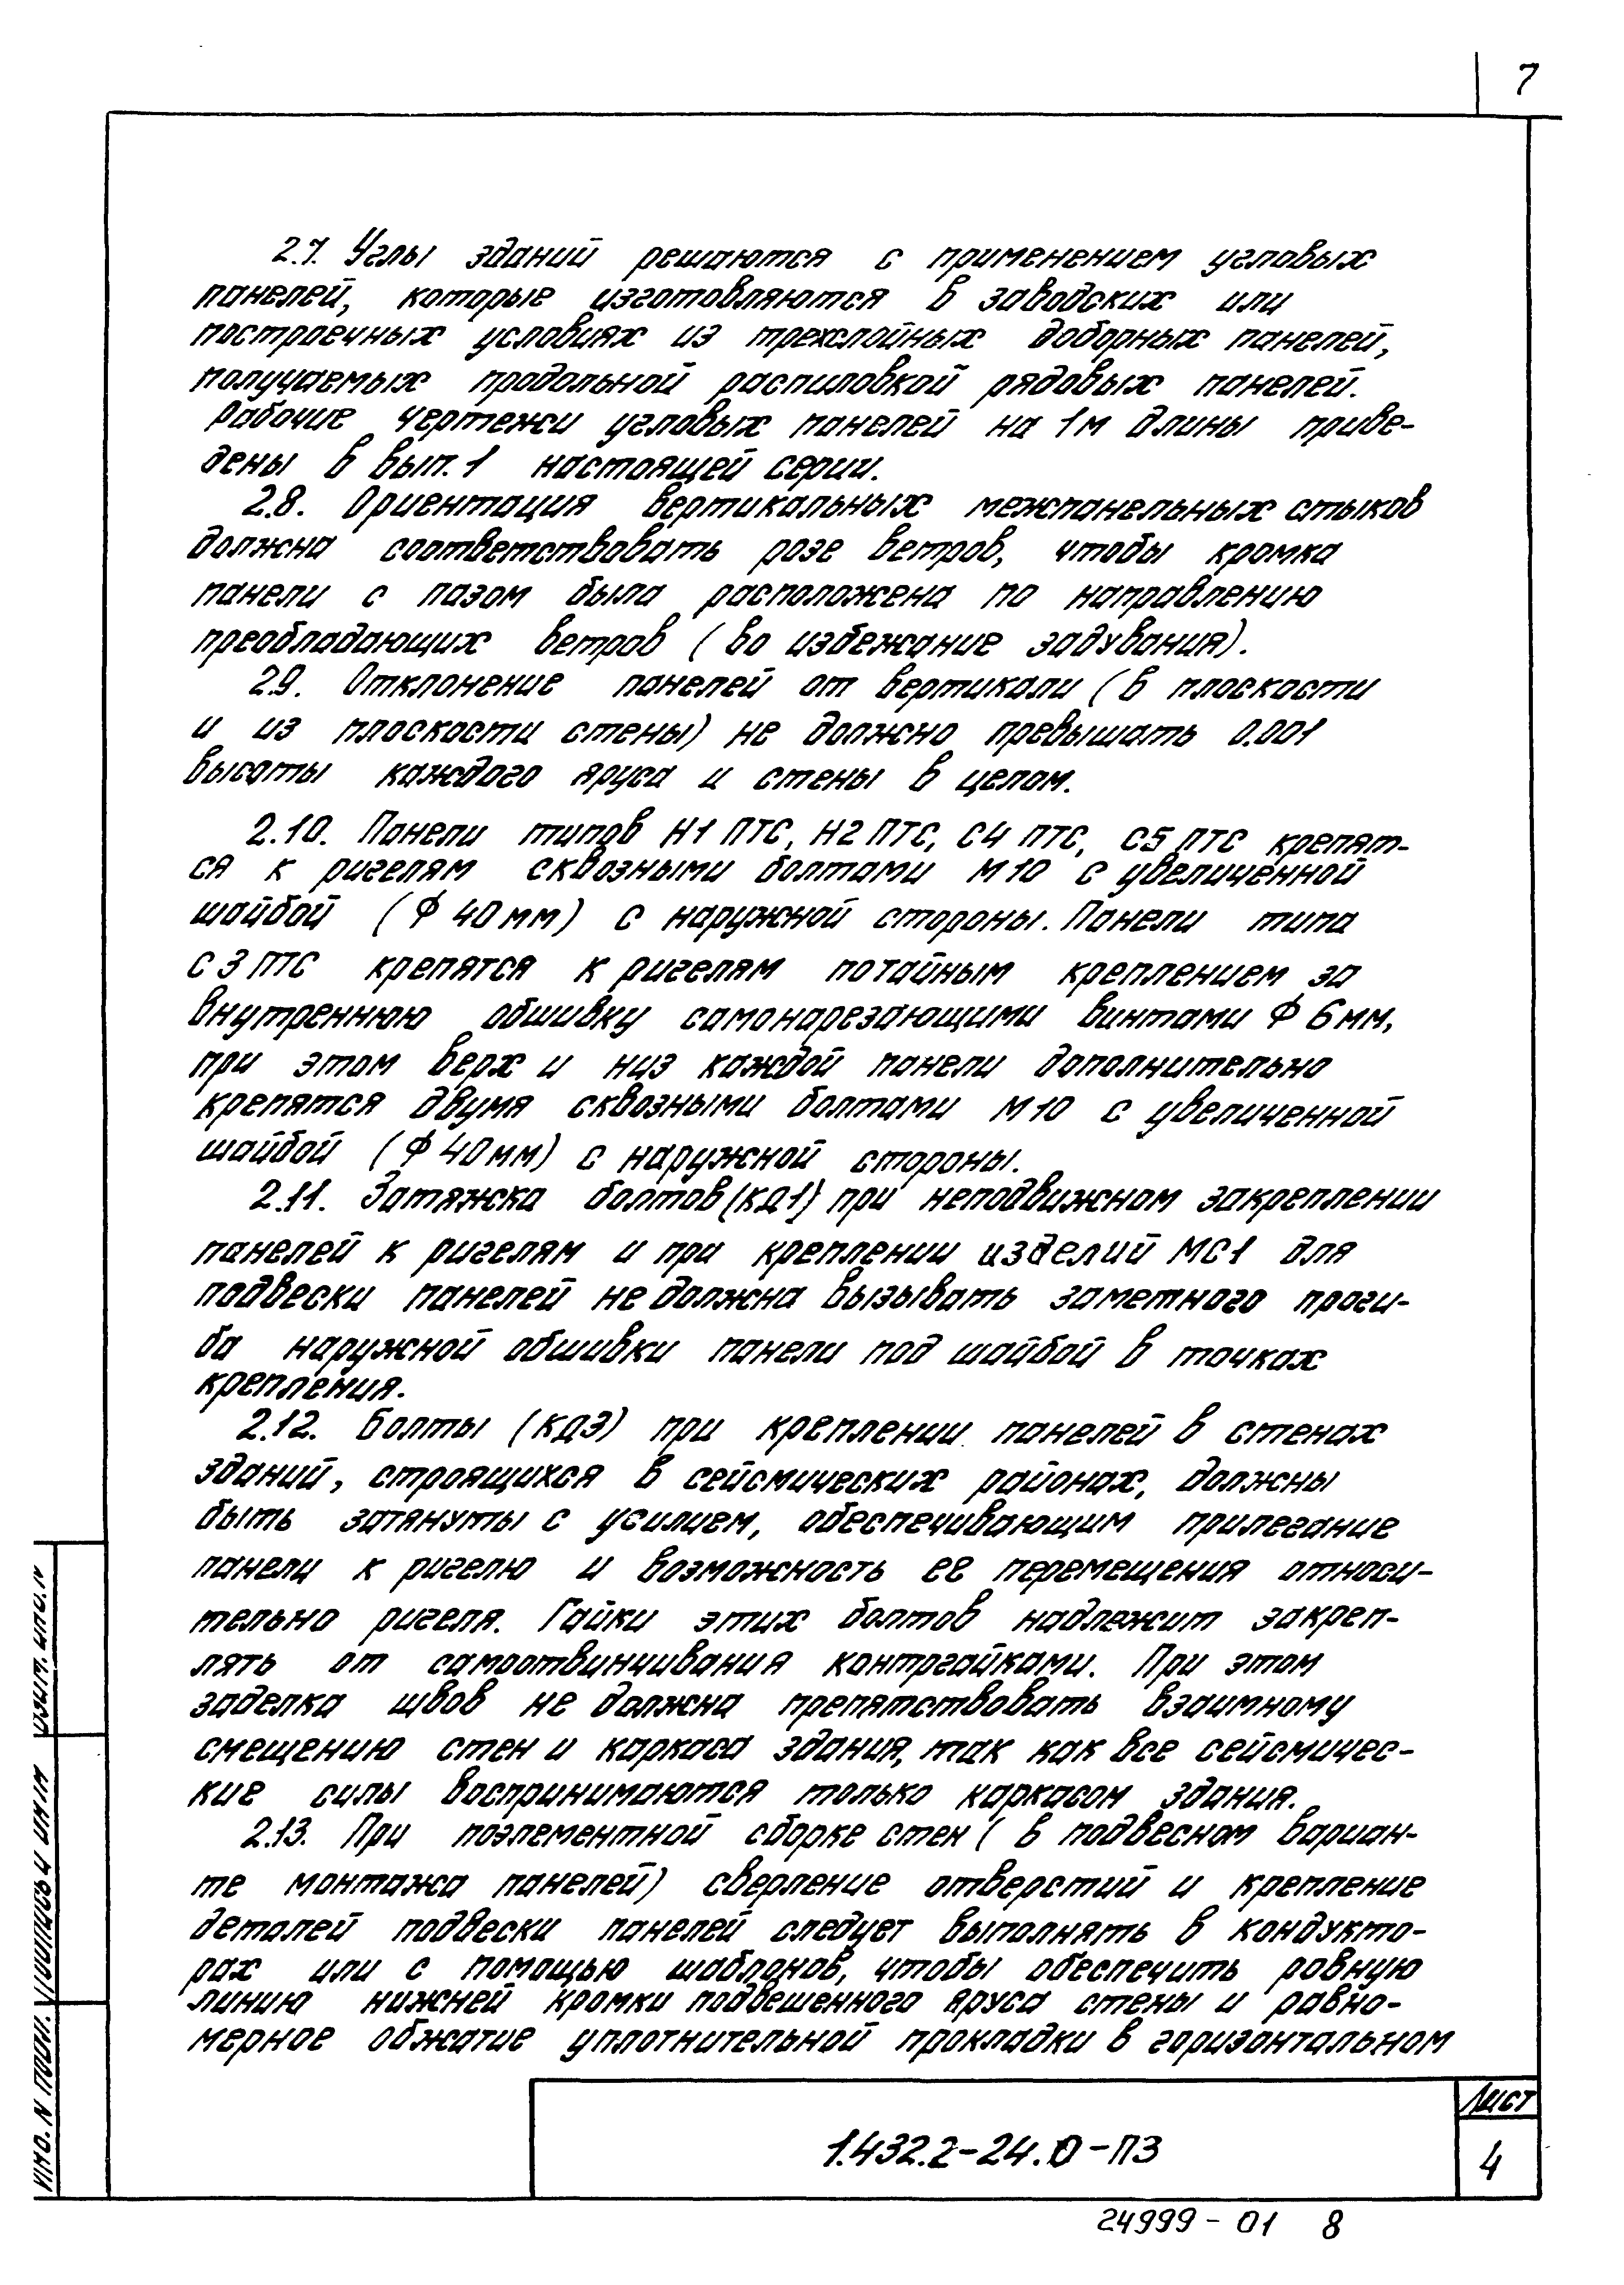 7
2.7. Углы зданий решаются с применением угловых
панелей, которые изготовляются в заводских или
построечных условиях из трехслойных доборных панелей,
получаемых продольной распиловкой рядовых панелей.
Рабочие чертежи угловых панелей на 1м длины приве-
дены в вып. 1 настоящей серии.
2.8. Ориентация вертикальных межпанельных стыков
должна соответствовать розе ветров, чтобы кромка
панели с пазом была расположена по направлению
преобладающих ветров (во избежание задувания).
2.9. Отклонение панелей от вертикали (в плоскости
и из плоскости стены) не должно превышать 0.001
высоты каждого яруса и стены в целом.
2.10. Панели типов Н1 ПТС, Н2 ПТС, С4 ПТС, С5 ПТС крепят-
ся к ригелям сквозными болтами М10 с увеличенной
шайбой (Ф 40 мм) с наружной стороны. Панели типа
С 3 ПТС крепятся к ригелям потайным креплением за
внутреннюю обшивку самонарезающими винтами Ф 6 мм,
при этом верх и низ каждой панели дополнительно
крепятся двумя сквозными болтами М10 с увеличенной
шайбой (Ф 40 мм) с наружной стороны.
2.11. Затяжка болтов (КД1) при неподвижном закреплении
панелей к ригелям и при креплении изделий МС1 для
подвески панелей не должна вызывать заметного проги-
ба наружной обшивки панели под шайбой в точках
крепления.
2.12. Болты (КД3) при креплении панелей в стенах
зданий, строящихся в сейсмических районах, должны
быть затянуты с усилием, обеспечивающим прилегание
панели к ригелю и возможность ее перемещения относи-
тельно ригеля. Гайки этих болтов надлежит закреп-
лять от самоотвинчивания контргайками. При этом
заделка швов не должна препятствовать взаимному
смещению стен и каркаса здания, так как все сейсмичес-
кие силы воспринимаются только каркасом здания.
2.13. При поэлементной сборке стен (в подвесном вариан-
те монтажа панелей) сверление отверстий и крепление
деталей подвески панелей следует выполнять в кондукто-
рах или с помощью шаблонов, чтобы обеспечить ровную
линию нижней кромки подвешенного яруса стены и равно-
мерное обжатие уплотнительной прокладки в горизонтальном
1.432.2-24.0-ПЗ
Лист
4
24999-01 8